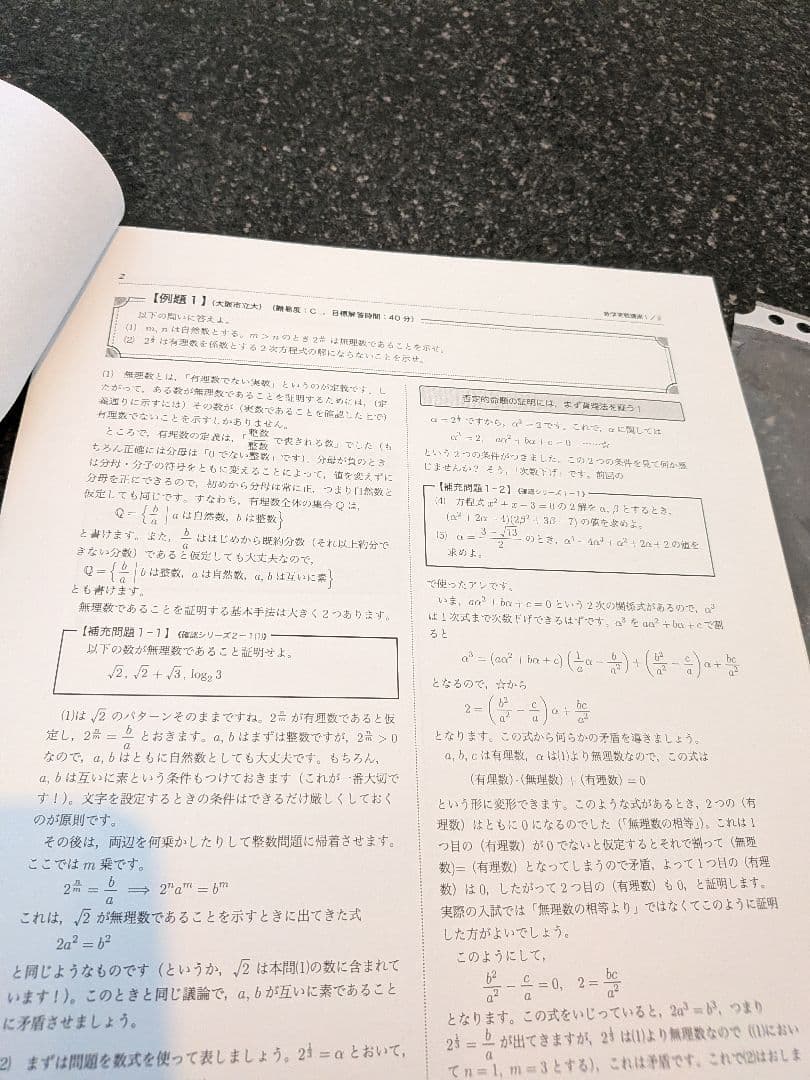 2
数学実戦講座1／2
【例題1】(大阪市立大) (難易度：C ，目標解答時間：40分)
以下の問いに答えよ。
(1) m, n は自然数とする。m > n のとき 2^{n/m} は無理数であることを示せ。
(2) 2^{1/3} は有理数を係数とする2次方程式の解にならないことを示せ。
(1) 無理数とは，「有理数でない実数」というのが定義です。し
たがって，ある数が無理数であることを証明するためには，(定
義通りに示すには) その数が (実数であることを確認した上で)
有理数でないことを示すしかありません。
ところで，有理数の定義は，「整数/整数 で表される数」でした (も
ちろん正確には分母は「0でない整数」です)。分母が負のとき
は分母・分子の符号をともに変えることによって，値を変えずに
分母を正にできるので，初めから分母は常に正，つまり自然数と
仮定しても同じです。すなわち，有理数全体の集合 ℚ は，
ℚ = { b/a | a は自然数, b は整数 }
と書けます。また，b/a ははじめから既約分数 (それ以上約分で
きない分数) であると仮定しても大丈夫なので，
ℚ = { b/a | b は整数, a は自然数, a, b は互いに素 }
とも書けます。
無理数であることを証明する基本手法は大きく2つあります。
【補充問題1-1】《確認シリーズ2-1(1)》
以下の数が無理数であること証明せよ。
√2, √2 + √3, log₂ 3
(1)は √2 のパターンそのままですね。2^{n/m} が有理数であると仮
定し，2^{n/m} = b/a とおきます。a, b はまずは整数ですが，2^{n/m} > 0
なので，a, b はともに自然数としても大丈夫です。もちろん，
a, b は互いに素という条件もつけておきます (これが一番大切で
す！)。文字を設定するときの条件はできるだけ厳しくしておく
のが原則です。
その後は，両辺を何乗かしたりして整数問題に帰着させます。
ここでは m 乗です。
2^{n/m} = b/a ⟹ 2ⁿaᵐ = bᵐ
これは，√2 が無理数であることを示すときに出てきた式
2a² = b²
と同じようなものです (というか，√2 は本問(1)の数に含まれて
います！)。このときと同じ議論で，a, b が互いに素であること
に矛盾させましょう。
2) まずは問題を数式を使って表しましょう。2^{1/3} = α とおいて，
否定的命題の証明には，まず背理法を疑う！
α = 2^{1/3} ですから，α³ = 2 です。これで，α に関しては
α³ = 2, aα² + bα + c = 0 ……☆
という2つの条件がつきました。この2つの条件を見て何か感
じませんか？ そう，「次数下げ」です。前回の
【補充問題1-2】《確認シリーズ1-1》
(4) 方程式 x² + x − 3 = 0 の2解を α, β とするとき，
(α² + 2α − 4)(2β² + 3β − 7) の値を求めよ。
(5) α = (3 − √13)/2 のとき，α⁴ − 4α³ + α² + 2α + 2 の値を
求めよ。
で使ったアレです。
いま，aα² + bα + c = 0 という2次の関係式があるので，α³
は1次式まで次数下げできるはずです。α³ を aα² + bα + c で割
ると
α³ = (aα² + bα + c)(1/a α − b/a²) + (b²/a² − c/a)α + bc/a²
となるので，☆から
2 = (b²/a² − c/a)α + bc/a²
となります。この式から何らかの矛盾を導きましょう。
a, b, c は有理数，α は(1)より無理数なので，この式は
(有理数)·(無理数) + (有理数) = 0
という形に変形できます。このような式があるとき，2つの (有
理数) はともに0になるのでした (「無理数の相等」)。これは1
つ目の (有理数) が0でないと仮定するとそれで割って (無理
数)= (有理数) となってしまうので矛盾，よって1つ目の (有理
数) は0，したがって2つ目の (有理数) も0，と証明します。
実際の入試では「無理数の相等より」ではなくてこのように証明
した方がよいでしょう。
このようにして，
b²/a² − c/a = 0, 2 = bc/a²
となります。この式をいじっていると，2a³ = b³，つまり
2^{1/3} = b/a が出てきますが，2^{1/3} は(1)より無理数なので ((1)におい
て n = 1, m = 3 とする)，これは矛盾です。これで(2)はおしま